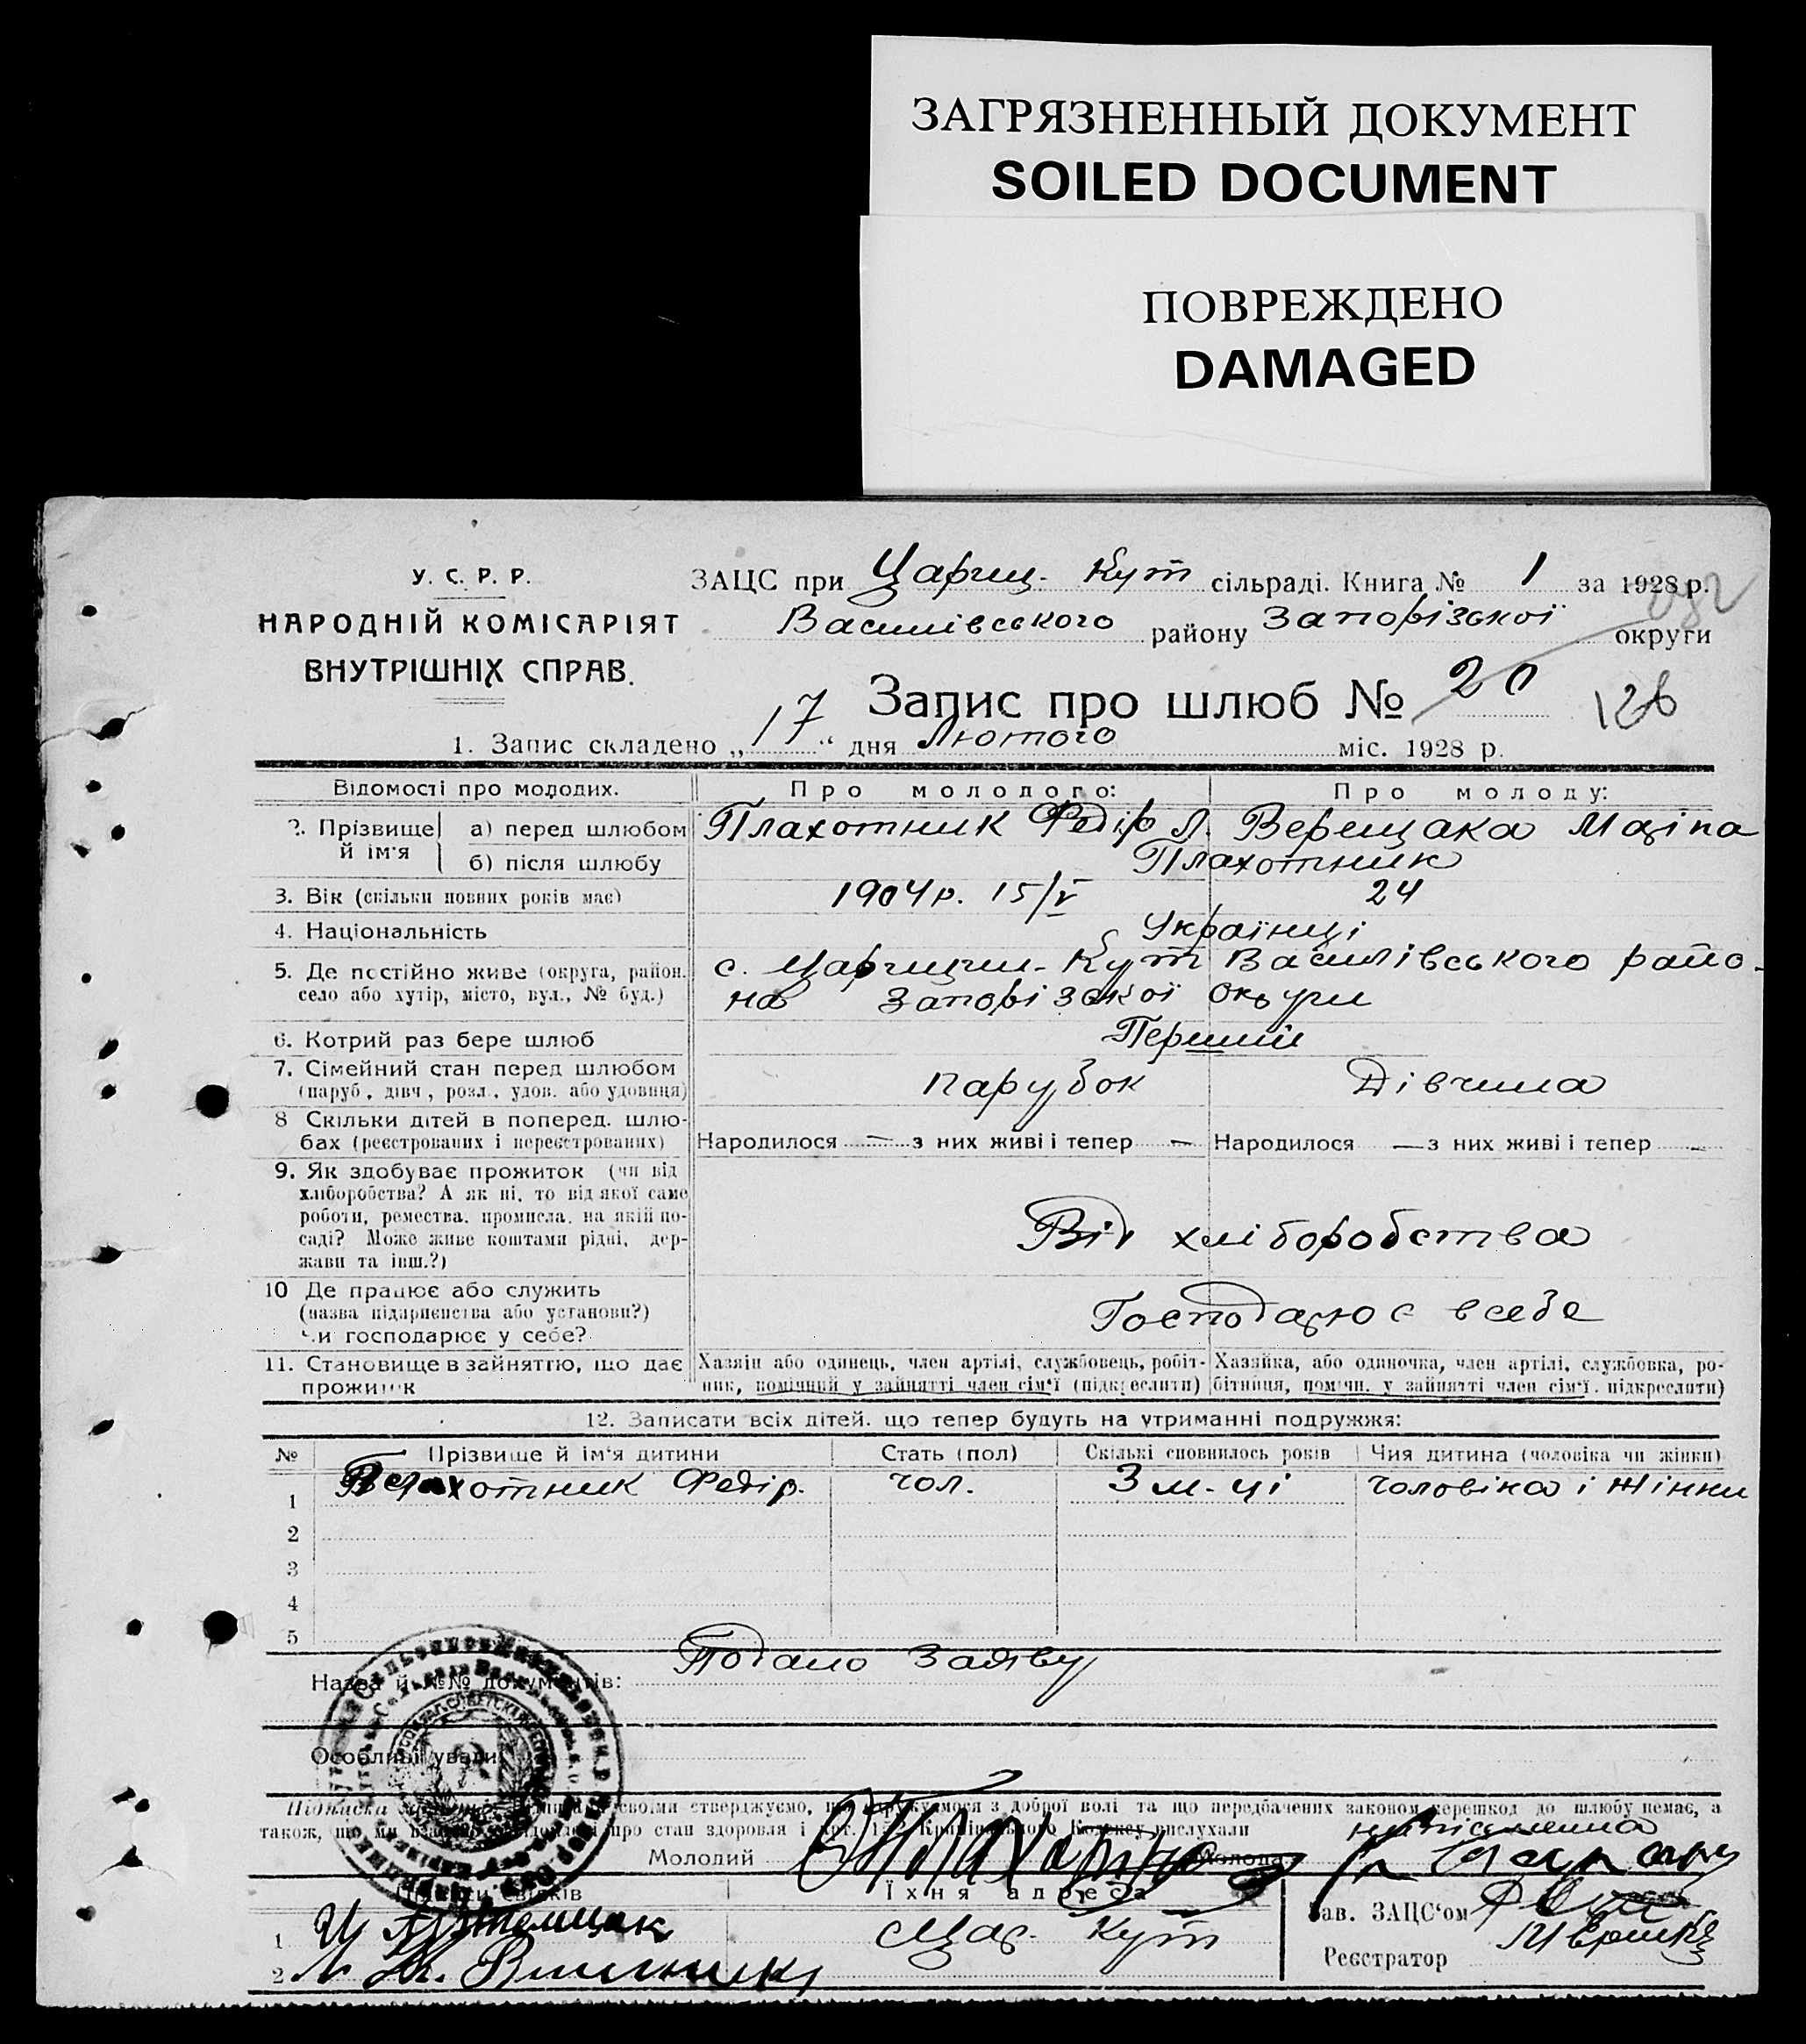 ЗАГРЯЗНЕННЫЙ ДОКУМЕНТ
SOILED DOCUMENT
ПОВРЕЖДЕНО
DAMAGED
У. С. Р. Р.
НАРОДНІЙ КОМІСАРІЯТ
ВНУТРІШНІХ СПРАВ.
ЗАЦС при Цариц. Кут сільраді. Книга № 1 за 1928 р.
Василівського району Запорізької округи
Запис про шлюб № 20 126
1. Запис складено „17“ дня Лютого міс. 1928 р.
Відомості про молодих. Про молодого: Про молоду:
2. Прізвище й ім'я а) перед шлюбом Плахотник Федір Л. Верещака Марїна
б) після шлюбу Плахотник
3. Вік (скільки повних років має) 1904 р. 15/V 24
4. Національність Українці
5. Де постійно живе (округа, район, с. Царицин-Кут Василівського райо-
село або хутір, місто, вул., № буд.) на Запорізької округи
6. Котрий раз бере шлюб Перший
7. Сімейний стан перед шлюбом парубок Дівчина
(паруб., дівч., розл., удов. або удовиця)
8 Скільки дітей в поперед. шлю-
бах (реєстрованих і нереєстрованих) Народилося — з них живі і тепер — Народилося — з них живі і тепер —
9. Як здобуває прожиток (чи від
хліборобства? А як ні, то від якої саме
роботи, ремества, промисла, на якій по-
саді? Може живе коштами рідні, дер- Від хліборобства
жави та інш.?)
10 Де працює або служить
(назва підприємства або установи?) Господарює в себе
чи господарює у себе?
11. Становище в зайняттю, що дає Хазяїн або одинець, член артілі, службовець, робіт- Хазяйка, або одиночка, член артілі, службовка, ро-
прожиток ник, помічний у зайнятті член сім'ї (підкреслити) бітниця, помічн. у зайнятті член сім'ї. підкреслити)
12. Записати всіх дітей, що тепер будуть на утриманні подружжя:
№ Прізвище й ім'я дитини Стать (пол) Скількі сповнилось років Чия дитина (чоловіка чи жінки)
1 Плахотник Федір. чол. 3 м-ці чоловіка і жінки
2
3
4
5
Подано Заяву
Назва й №№ документів:
Особливі уваги:
своїми стверджуємо, що одружуємося з доброї волі та що передбачених законом перешкод до шлюбу немає, а
також, що ми про стан здоровля і Кримінального Кодексу вислухали
неписьменна
Молодий Молода
Підписи свідків Їхня адреса Зав. ЗАЦС'ом
1 Цар. Кут
Реєстратор
2